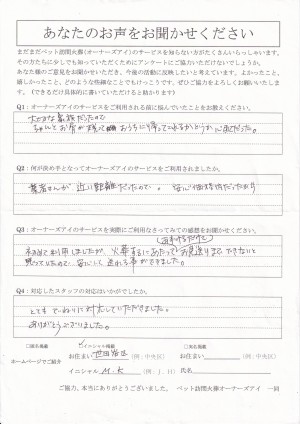 あなたのお声をお聞かせください
まだまだペット訪問火葬(オーナーズアイ)のサービスを知らない方がたくさんいらっしゃいます。
その方たちに少しでも知っていただくためにアンケートにご協力いただけないでしょうか。
あなた様のご意見をお聞かせいただき、今後の活動に反映したいと考えています。よかったこと、
嬉しかったこと、どのような些細なことでもけっこうです。ぜひご協力をよろしくお願いいたします。
(できるだけ具体的に書いていただけると助かります)
Q1:オーナーズアイのサービスをご利用される前に悩んでいたことをお教えください。
大切な家族だったので
ちゃんとお骨が残って おうちに帰ってこれるかどうか心配だった。
Q2:何が決め手となってオーナーズアイのサービスをご利用されましたか。
業者さんが近い距離だったので。安心価格だったから
Q3:オーナーズアイのサービスを実際にご利用なさってみての感想をお聞かせください。
初めて利用しましたが、火葬するにあたってお見送りまでできないと
思っていたので、安心して送れる事ができました。
Q4:対応したスタッフの対応はいかがでしたか。
とてもていねいに対応していただきました。
ありがとうございました。
ホームページでご紹介
□実名掲載
イニシャル掲載
□未名掲載
お住まい 世田谷区 (例:中央区)
お住まい (例:中央区)
イニシャル M.K (例:J.H)
氏名
ご協力、本当にありがとうございました。 ペット訪問火葬オーナーズアイ 一同